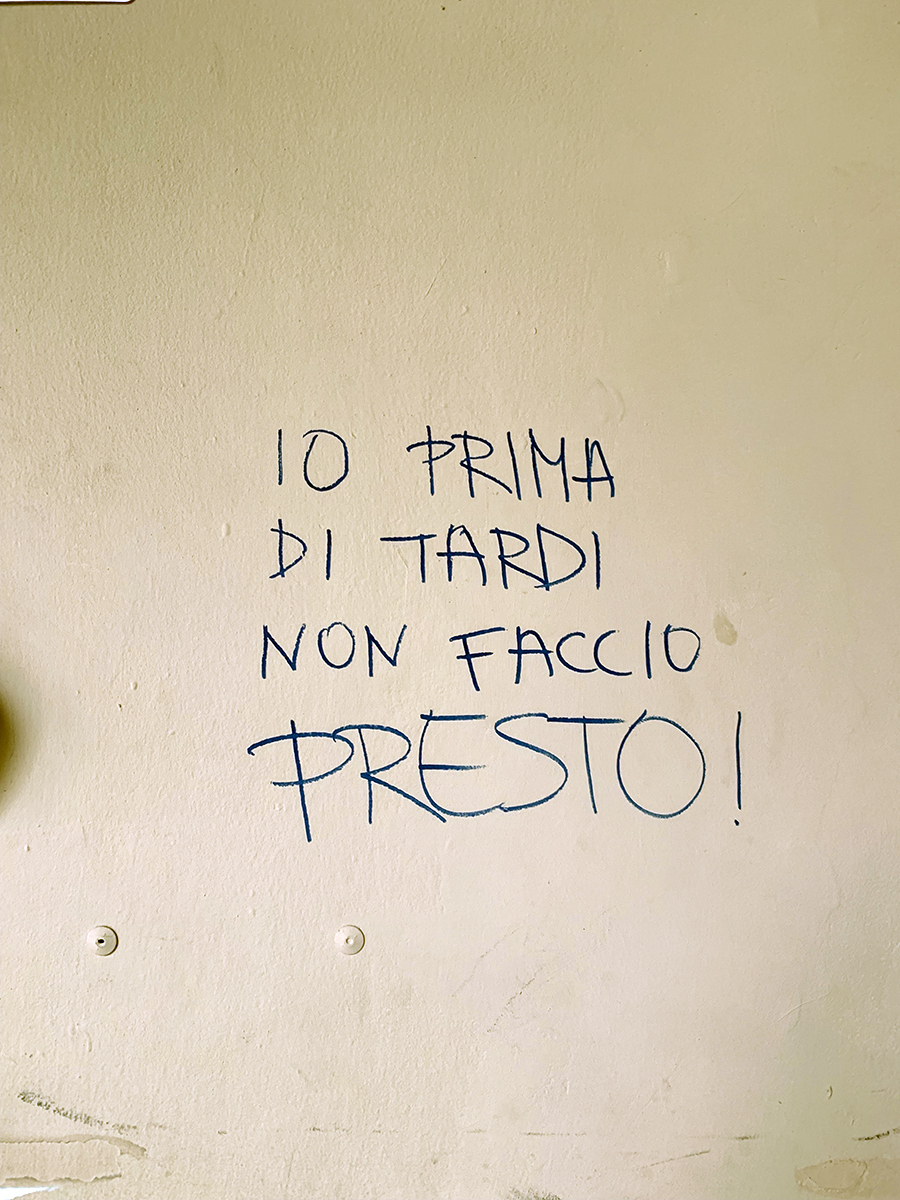 IO PRIMA
DI TARDI
NON FACCIO
PRESTO!